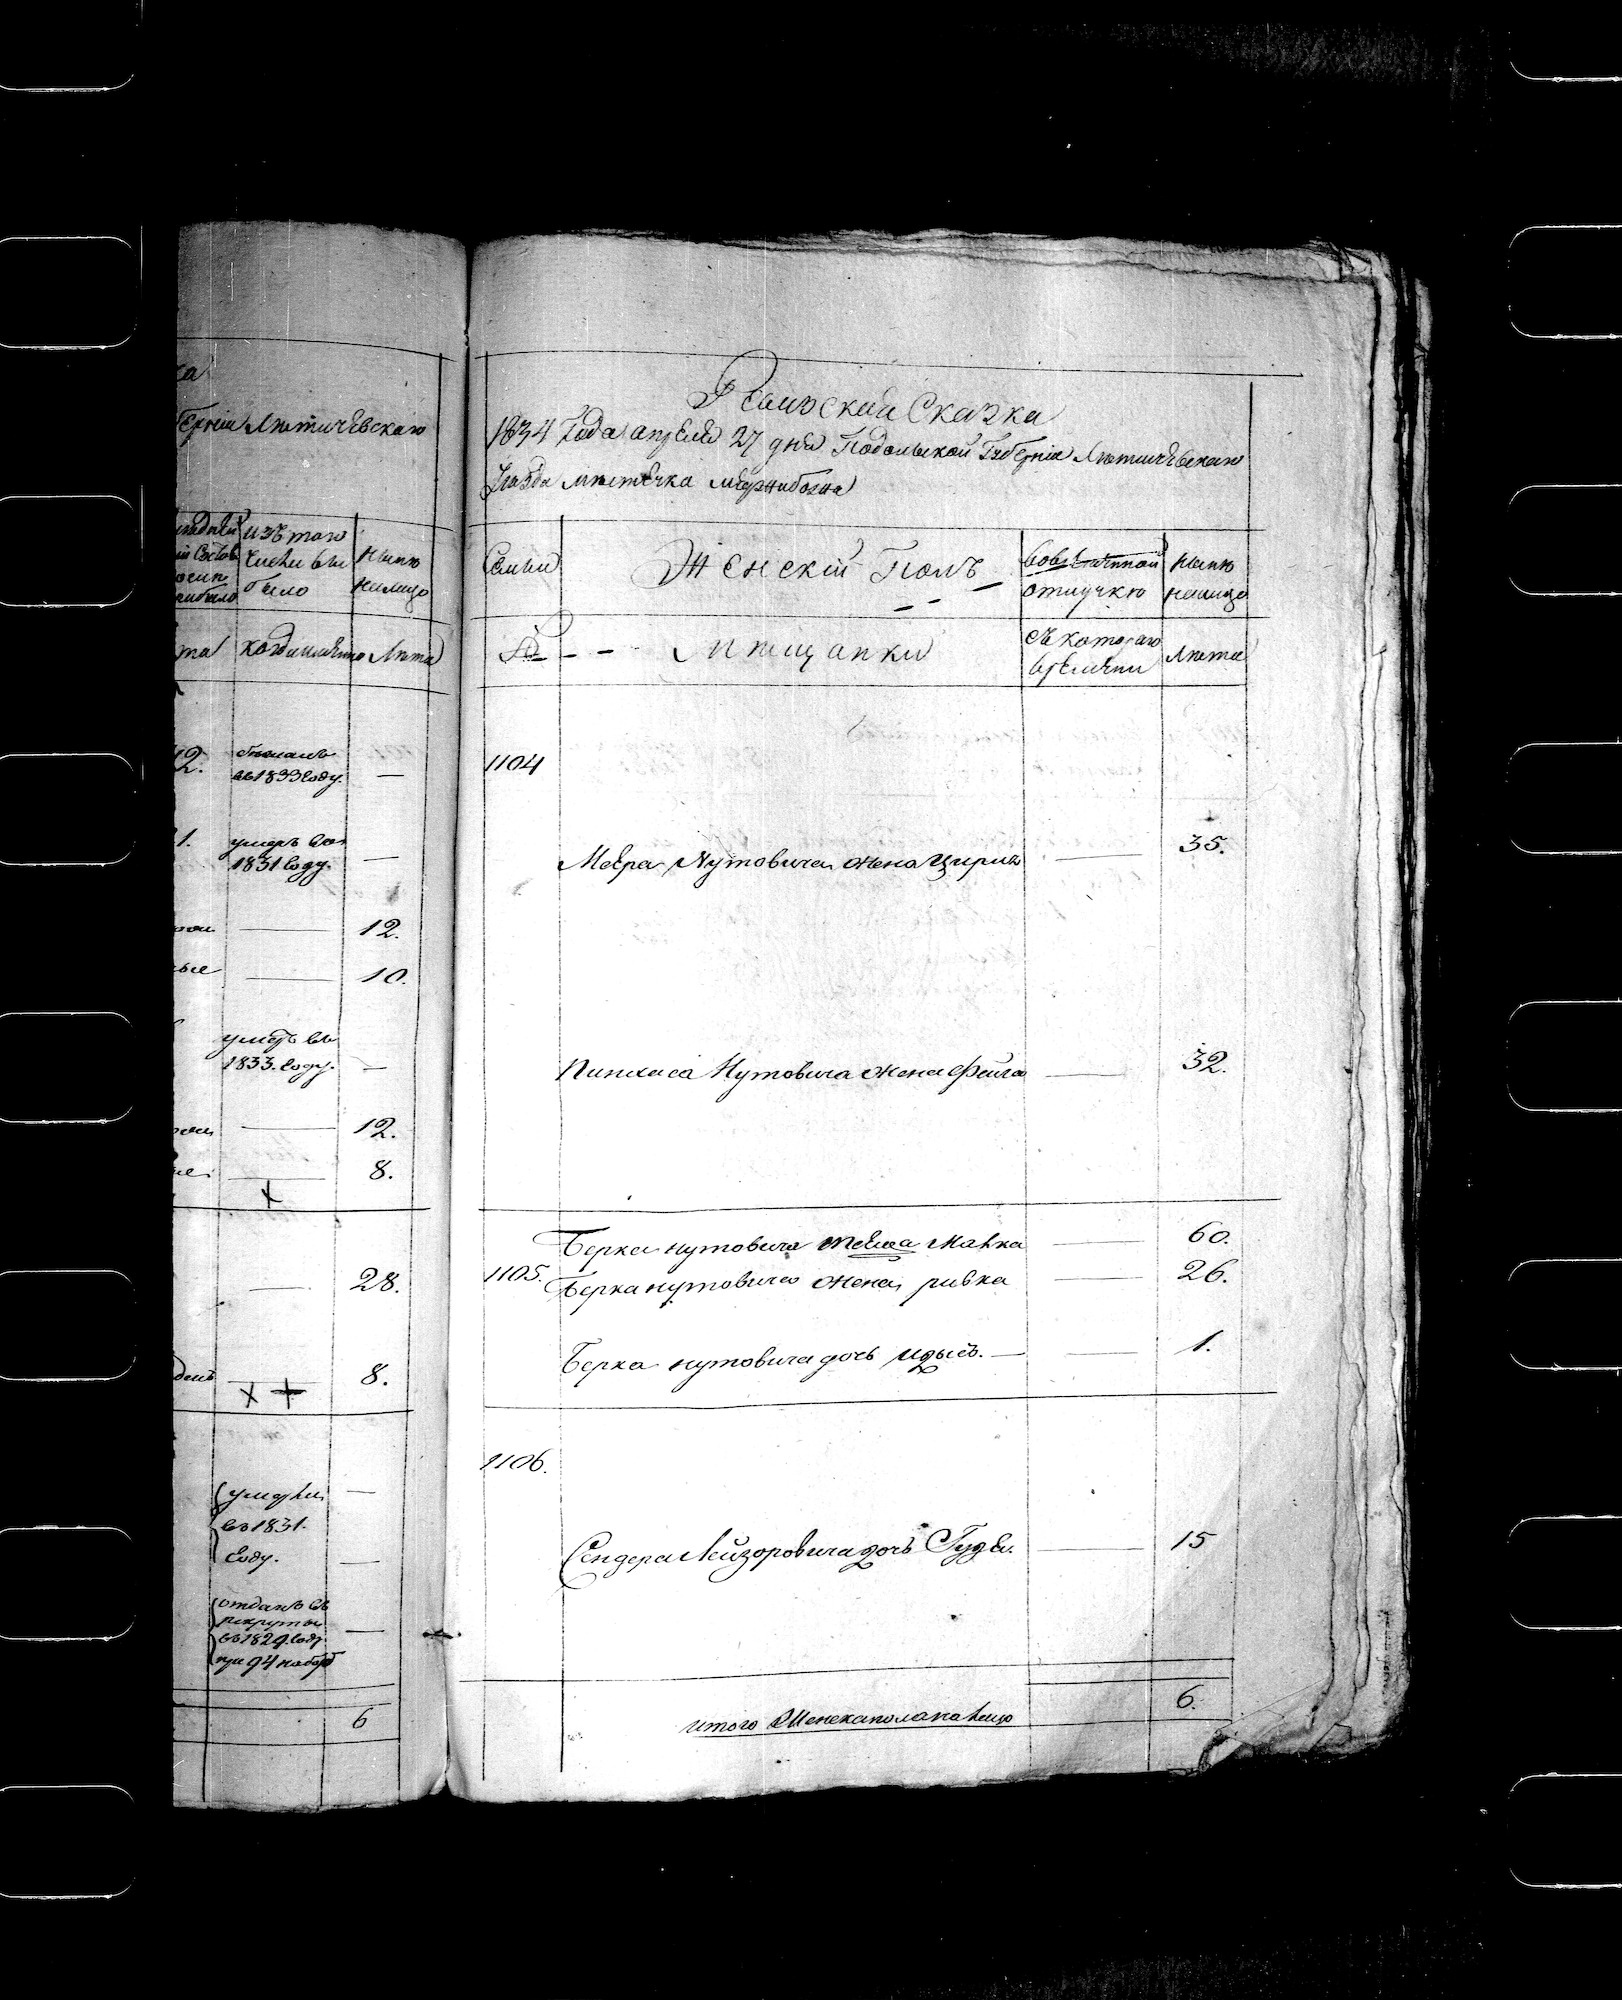 Губерніи Лѣтичевскаго
изъ того
числа вы
было
нынѣ
налицо
когда именно
Лѣта
12.
бѣжалъ
въ 1833 году.
—
1.
умеръ въ
1831 году.
—
—
12.
—
10.
умеръ въ
1833. году.
—
—
12.
—
8.
—
28.
—
8.
умерли
въ 1831.
году.
—
—
отданъ въ
рекруты
въ 1829. году
при 94 наборѣ
—
6
Ревизская Сказка
1834 Года апреля 27 дня Подольской Губерніи Лѣтичевскаго
Уѣзда мѣстечка Меджибожа
Семьи
Женскій Полъ
вовременной
отлучкѣ
нынѣ
налицо
№
Мѣщанки
съ котораго
времени
Лѣта
1104
Меера Нутовича жена Цирля — 35.
Пинхаса Нутовича жена Фейга — 32.
Берка нутовича Малка — 60.
1105. Берка нутовича жена ривка — 26.
Берка нутовича дочь — 1.
1106.
Сендера Лейзоровича дочь — 15
итого женска пола налицо 6.